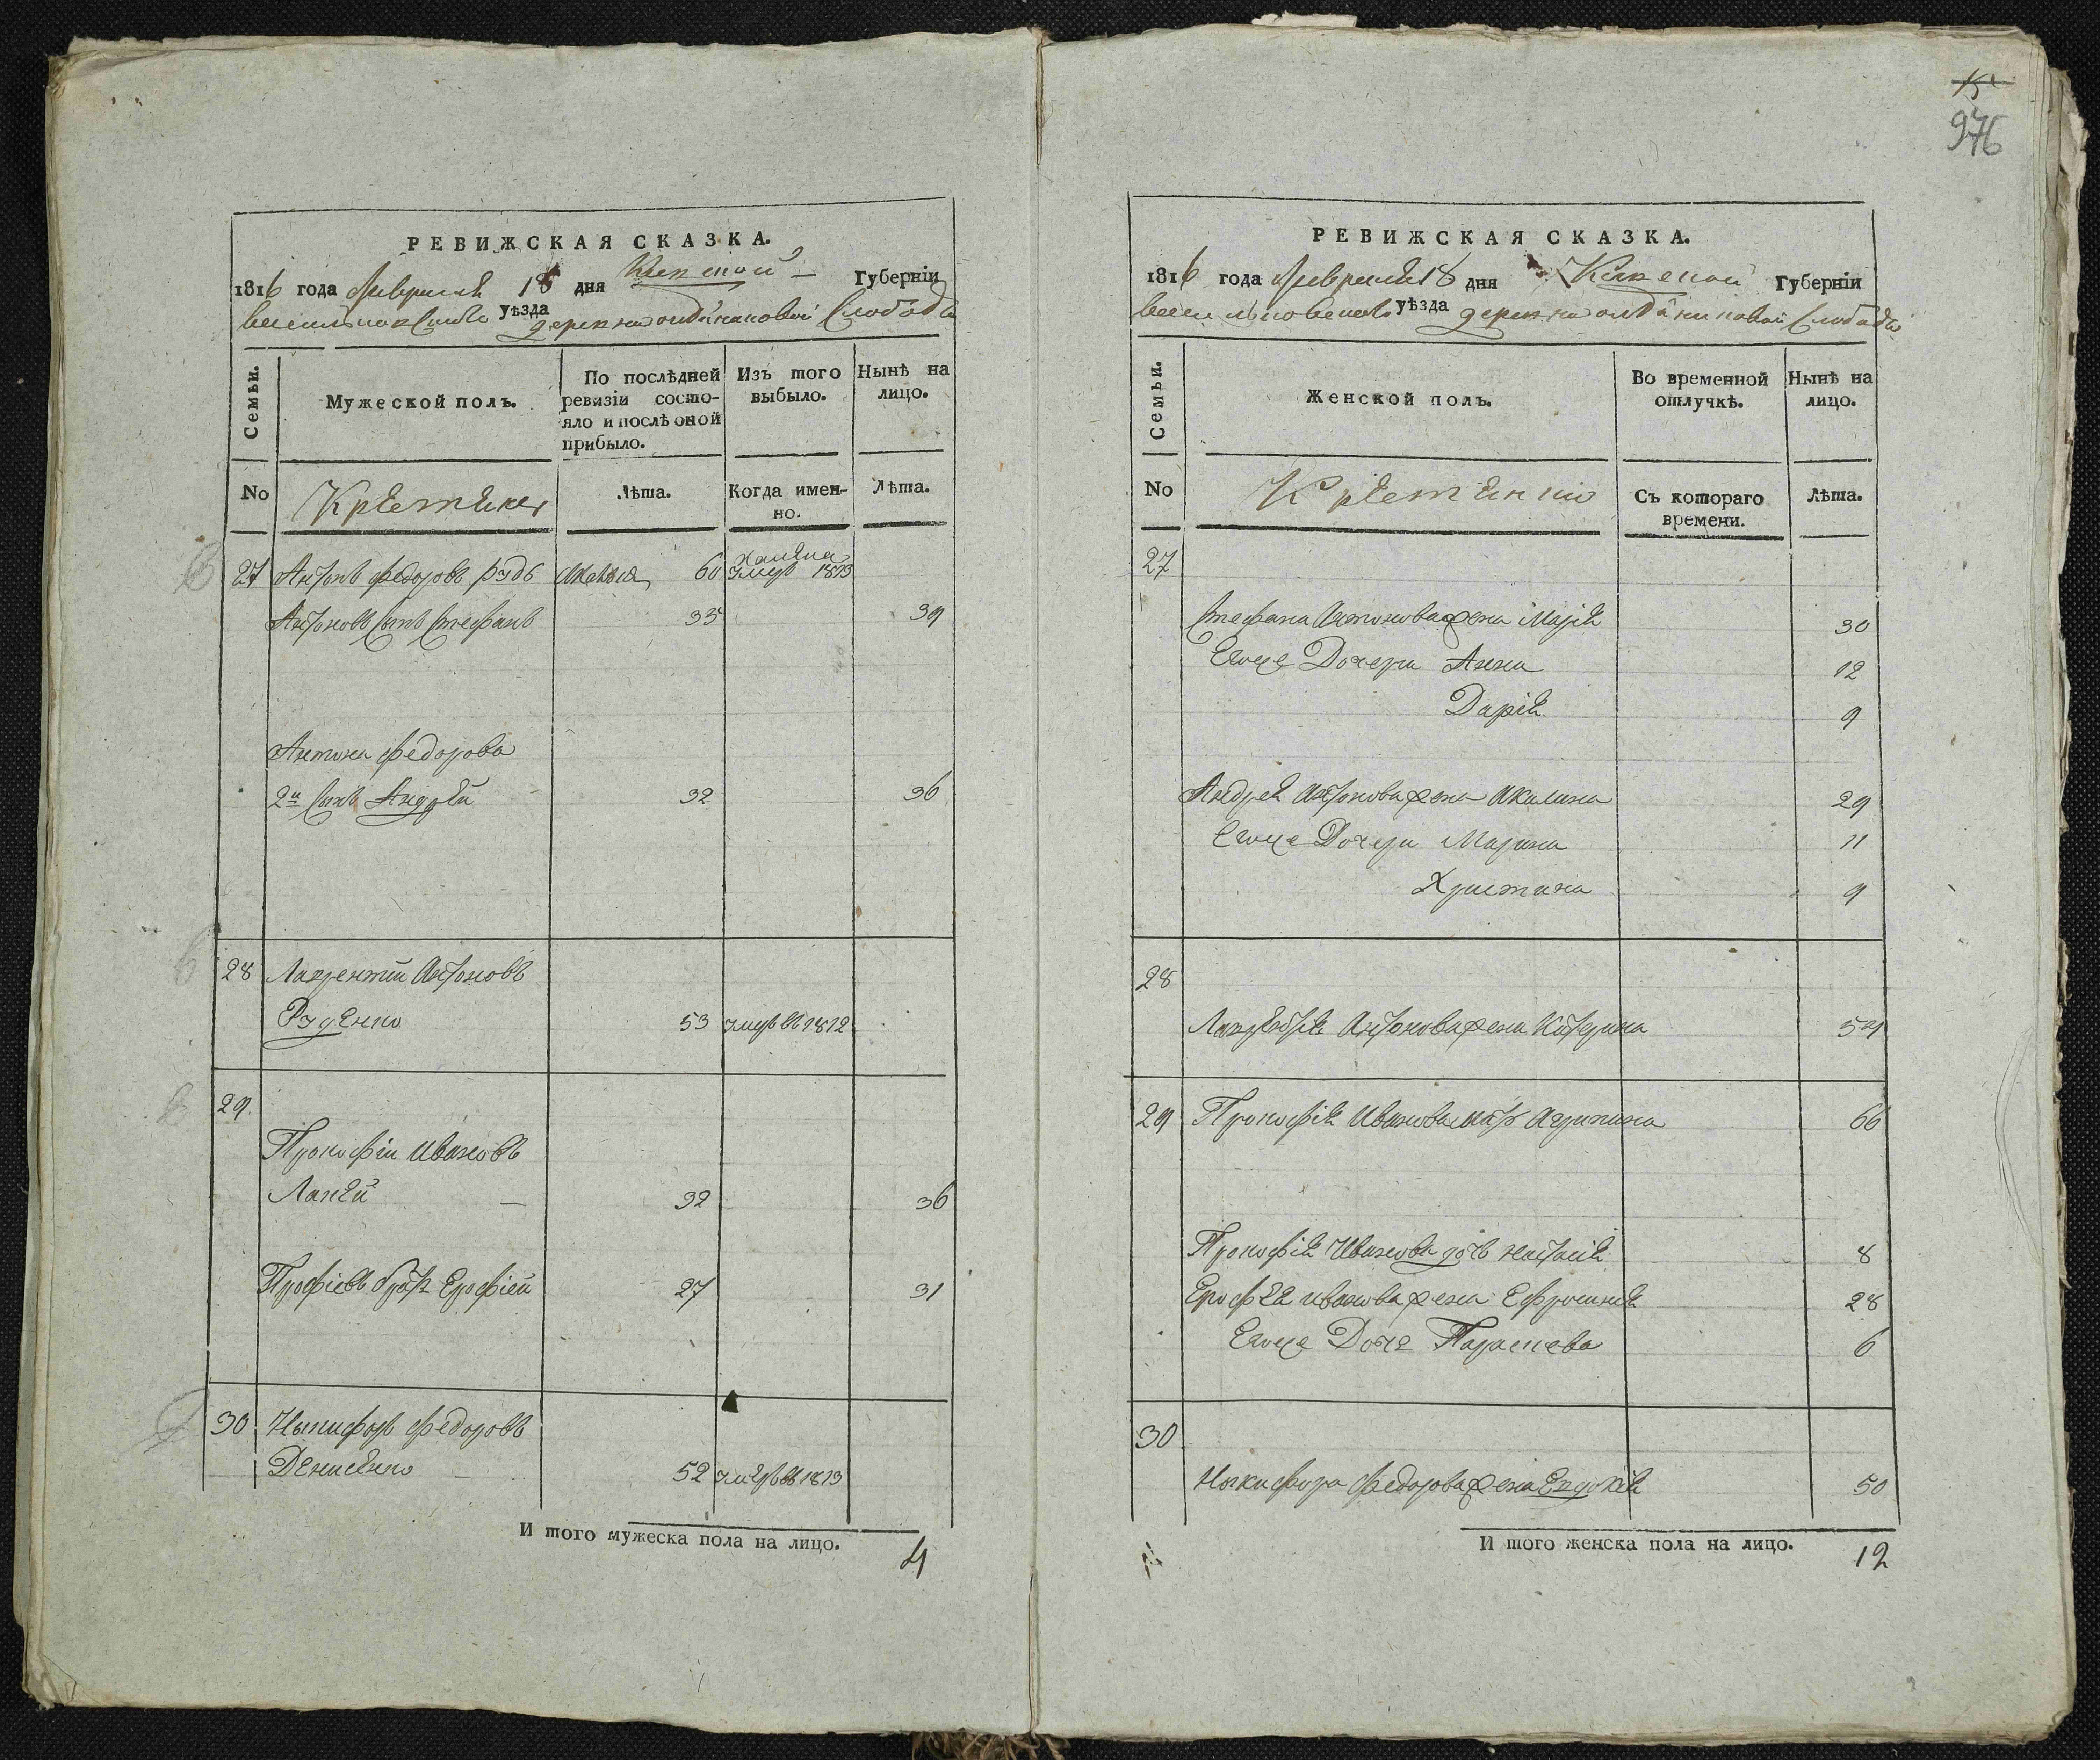 РЕВИЖСКАЯ СКАЗКА.
1816 года февраля 18 дня Киевской Губерніи
васильковскаго уѣзда деревни Слободы
Семьи.
Мужеской полъ.
По послѣдней ревизіи состояло и послѣ оной прибыло.
Изъ того выбыло.
Нынѣ на лицо.
No
Крестяне
Лѣта.
Когда именно.
Лѣта.
27 Антонъ Федоровъ 60 умеръ 1813
Антоновъ сынъ Стефанъ 35 39
Антона Федорова
2й сынъ Андрей 32 36
28 Лаврентій Антоновъ
Руденко 53 умеръ въ 1812
29
Прокофій Ивановъ
32 36
братъ Ерофiей 27 31
30 Никифоръ Федоровъ
Денисенко 52 умеръ въ 1813
И того мужеска пола на лицо. 4
15
976
РЕВИЖСКАЯ СКАЗКА.
1816 года февраля 18 дня Киевской Губерніи
васильковскаго уѣзда деревни Слободы
Семьи.
Женской полъ.
Во временной отлучкѣ.
Нынѣ на лицо.
No
Крестянки
Съ котораго времени.
Лѣта.
27
Стефана Антонова жена Марія 30
Егоже Дочери Анна 12
Дарія 9
Андрея Антонова жена Акилина 29
Егоже Дочери Марина 11
Христина 9
28
Антонова жена Катерина 54
29 Прокофія Иванова мать Агрипина 66
Прокофія Иванова дочь Настасія 8
Ерофѣя иванова жена Ефросинія 28
Егоже Дочь Параскева 6
30
Никифора Федорова жена Евдокія 50
И того женска пола на лицо. 12